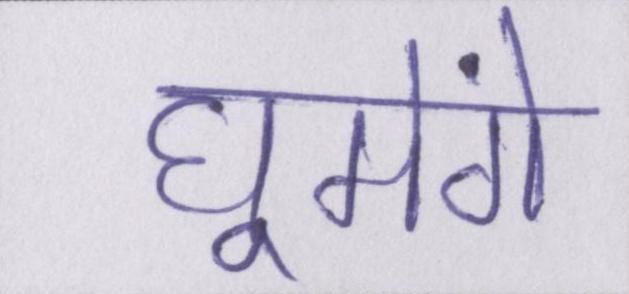 घूमेंगे